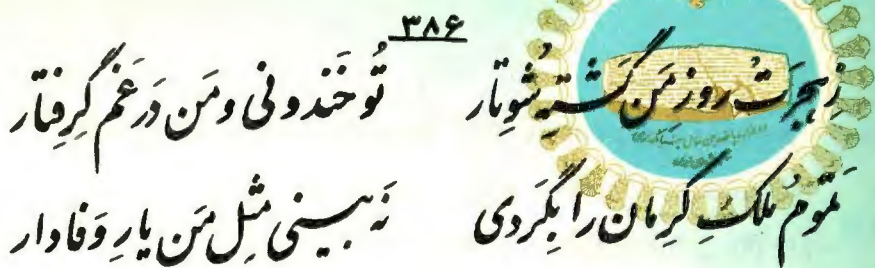 ۳۸۶
زِهجرَتْ روزِ مَن گَشتهِ شُوِتار تُو خَندونی و مَن دَر غَم گِرِفتار
تَمّومُ مُلکِ کِرمان را بِگَردی نَه بینی مِثلِ مَن یارِ وَفادار